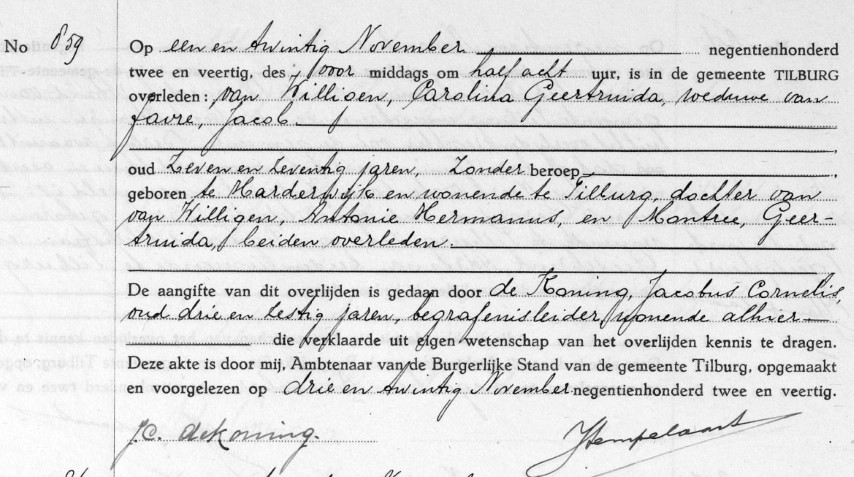 No 859 Op een en twintig November negentienhonderd
twee en veertig, des voor middags om half acht uur, is in de gemeente TILBURG
overleden: van Willigen, Carolina Geertruida, weduwe van
Favre, Jacob.
oud Zeven en Zeventig jaren, Zonder beroep,
geboren te Harderwijk en wonende te Tilburg, dochter van
van Willigen, Antonie Hermanus, en Montree, Geer-
truida, beiden overleden.
De aangifte van dit overlijden is gedaan door de Koning, Jacobus Cornelis,
oud drie en zestig jaren, begrafenisleider, wonende alhier
die verklaarde uit eigen wetenschap van het overlijden kennis te dragen.
Deze akte is door mij, Ambtenaar van de Burgerlijke Stand van de gemeente Tilburg, opgemaakt
en voorgelezen op drie en twintig November negentienhonderd twee en veertig.
JC. deKoning.